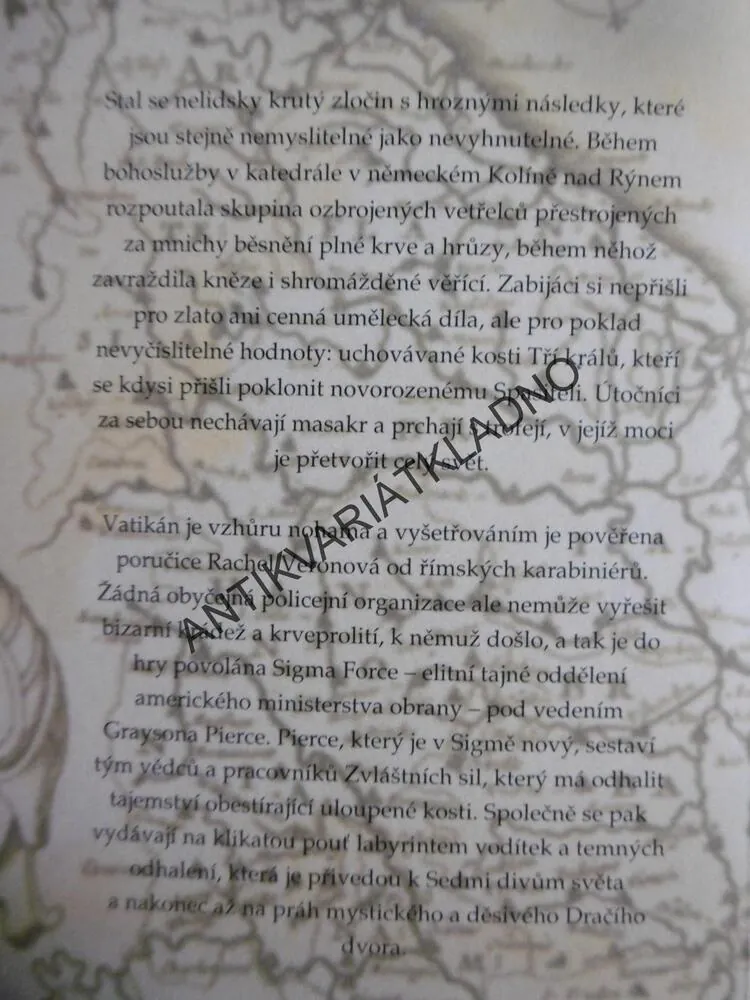 Stal se nelidsky krutý zločin s hroznými následky, které
jsou stejně nemyslitelné jako nevyhnutelné. Během
bohoslužby v katedrále v německém Kolíně nad Rýnem
rozpoutala skupina ozbrojených vetřelců přestrojených
za mnichy běsnění plné krve a hrůzy, během něhož
zavraždila kněze i shromážděné věřící. Zabijáci si nepřišli
pro zlato ani cenná umělecká díla, ale pro poklad
nevyčíslitelné hodnoty: uchovávané kosti Tří králů, kteří
se kdysi přišli poklonit novorozenému Spasiteli. Útočníci
za sebou nechávají masakr a prchají s trofejí, v jejíž moci
je přetvořit celý svět.
Vatikán je vzhůru nohama a vyšetřováním je pověřena
poručice Rachel Veronová od římských karabiniérů.
Žádná obyčejná policejní organizace ale nemůže vyřešit
bizarní krádež a krveprolití, k němuž došlo, a tak je do
hry povolána Sigma Force – elitní tajné oddělení
amerického ministerstva obrany – pod vedením
Graysona Pierce. Pierce, který je v Sigmě nový, sestaví
tým vědců a pracovníků Zvláštních sil, který má odhalit
tajemství obestírající uloupené kosti. Společně se pak
vydávají na klikatou pouť labyrintem vodítek a temných
odhalení, která je přivedou k Sedmi divům světa
a nakonec až na práh mystického a děsivého Dračího
dvora.
ANTIKVARIÁTKLADNO